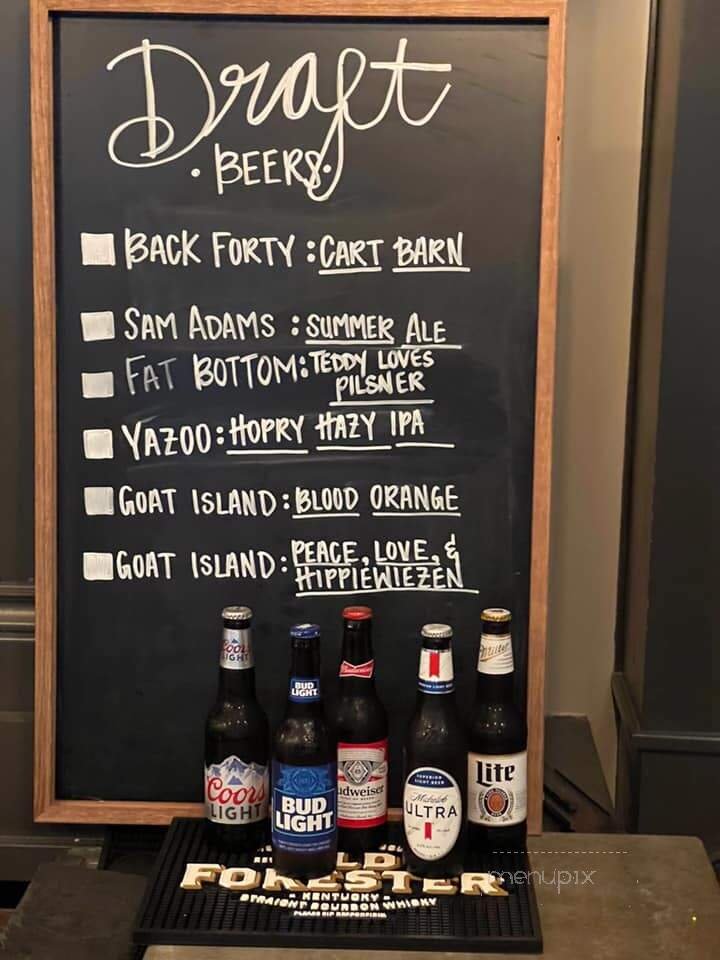 Draft
· BEERS ·
BACK FORTY : CART BARN
SAM ADAMS : SUMMER ALE
FAT BOTTOM : TEDDY LOVES
PILSNER
YAZOO : HOPRY HAZY IPA
GOAT ISLAND : BLOOD ORANGE
GOAT ISLAND : PEACE, LOVE, &
HIPPIEWIEZEN
Coors
LIGHT
BUD
LIGHT
Miller
Coors
LIGHT
BUD
LIGHT
Budweiser
SUPERIOR
LIGHT BEER
Michelob
ULTRA
Lite
OLD
FORESTER
KENTUCKY
STRAIGHT BOURBON WHISKY
PLEASE SIP RESPONSIBLY
menupix